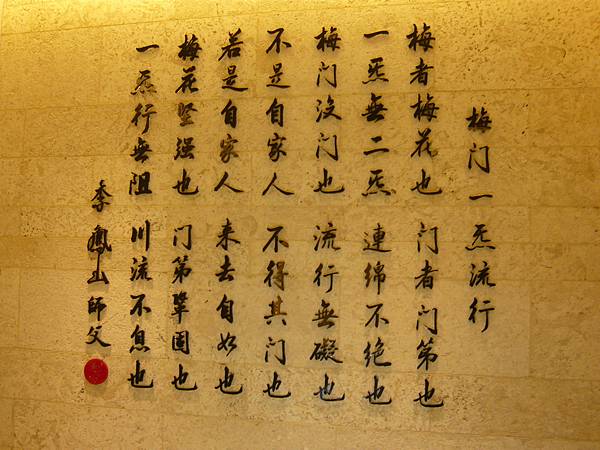 梅门一炁流行
梅者梅花也 门者门第也
一炁無二炁 連绵不绝也
梅门没门也 流行無礙也
不是自家人 不得其门也
若是自家人 来去自如也
梅花坚强也 门第鞏固也
一炁行無阻 川流不息也
李鳳山師父